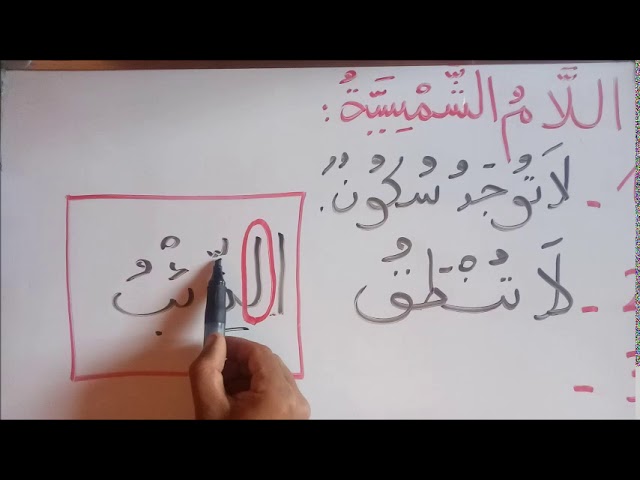 اللَّامُ الشَّمْسِيَّةُ :
1 - لَا تُوجَدُ سُكُونٌ.
2 - لَا تُنْطَقُ
3 -
الذِّئْبُ